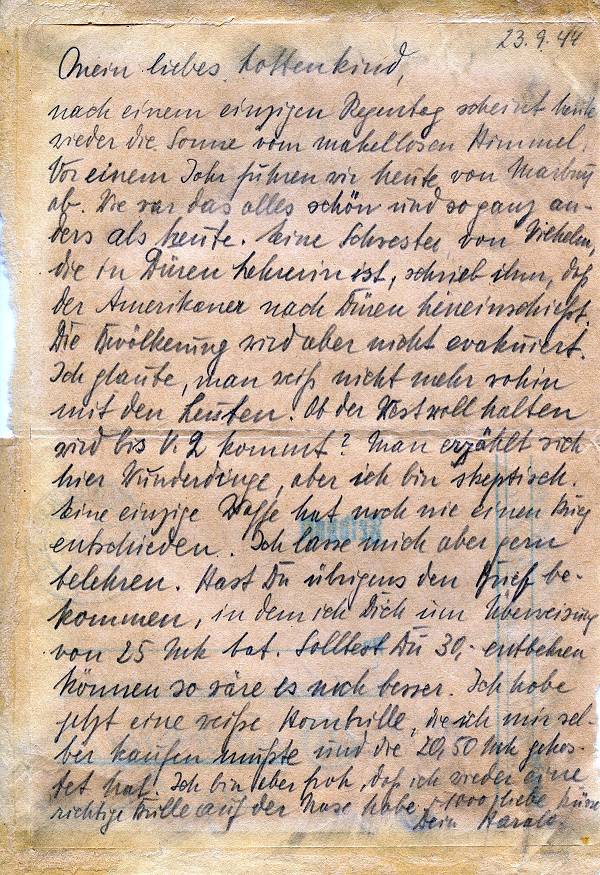 23.9.44
Mein liebes Lottenkind,
nach einem einzigen Regentag scheint heute
wieder die Sonne vom makellosen Himmel.
Vor einem Jahr fuhren wir heute von Marburg
ab. Wie war das alles schön und so ganz an-
ders als heute. Eine Schwester von Wilhelm,
die in Düren Lehrerin ist, schrieb ihm, daß
der Amerikaner nach Düren hineinschießt.
Die Bevölkerung wird aber nicht evakuiert.
Ich glaube, man weiß nicht mehr wohin
mit den Leuten. Ob der Westwall halten
wird bis V.2 kommt? Man erzählt sich
hier Wunderdinge, aber ich bin skeptisch.
Eine einzige Waffe hat noch nie einen Krieg
entschieden. Ich lasse mich aber gern
belehren. Hast Du übrigens den Brief be-
kommen, in dem ich Dich um Überweisung
von 25 Mk bat. Solltest Du 30,- entbehren
können so wäre es noch besser. Ich habe
jetzt eine weiße Hornbrille, die ich mir sel-
ber kaufen mußte und die 20,50 Mk gekos-
tet hat. Ich bin aber froh, daß ich wieder eine
richtige Brille auf der Nase habe. 1000 liebe Küsse
Dein Harald.